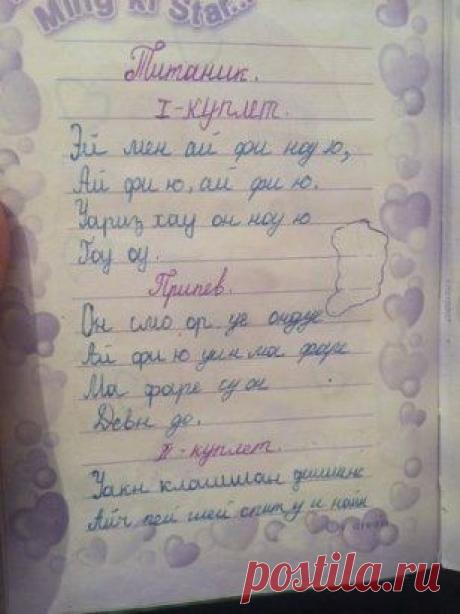 Ming ki Star...
Титаник.
I - куплет.
Эй мен ай фи ноу ю,
Ай фи ю, ай фи ю.
Уариз хау он ноу ю
Гоу оу.
Припев.
Он смо ор уе ондуе
Ай фи ю уин ма фаре
Ма фаре су он
Девн до.
II - куплет.
Уакн клашман дишине
Айч пей шей спит у н найн
postila.ru